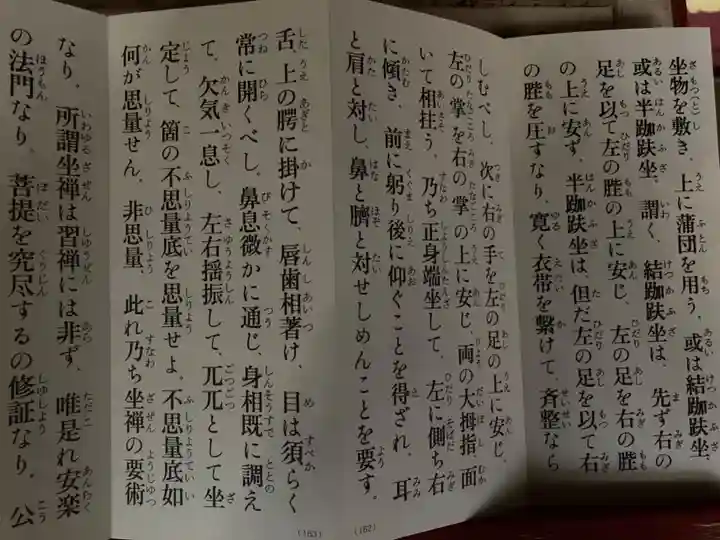 坐物を敷き、上に蒲団を用う。或は結跏趺坐、
或は半跏趺坐。謂く、結跏趺坐は、先ず右の
足を以て左の䏶の上に安じ、左の足を右の䏶
の上に安ず。半跏趺坐は、但だ左の足を以て右
の䏶を圧すなり。寛く衣帯を繋けて、斉整なら
しむべし。次に右の手を左の足の上に安じ、
左の掌を右の掌の上に安じ、両の大拇指、面
いて相拄う。乃ち正身端坐して、左に側ち右
に傾き、前に躬り後に仰ぐことを得ざれ。耳
と肩と対し、鼻と臍と対せしめんことを要す。
(162)
舌、上の腭に掛けて、唇歯相著け、目は須らく
常に開くべし。鼻息微かに通じ、身相既に調え
て、欠気一息し、左右揺振して、兀兀として坐
定して、箇の不思量底を思量せよ。不思量底如
何が思量せん。非思量 此れ乃ち坐禅の要術
(163)
なり。所謂坐禅は習禅には非ず。唯是れ安楽
の法門なり。菩提を究尽するの修証なり。公